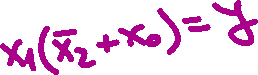 x₁(x̄₂+x₀)=y